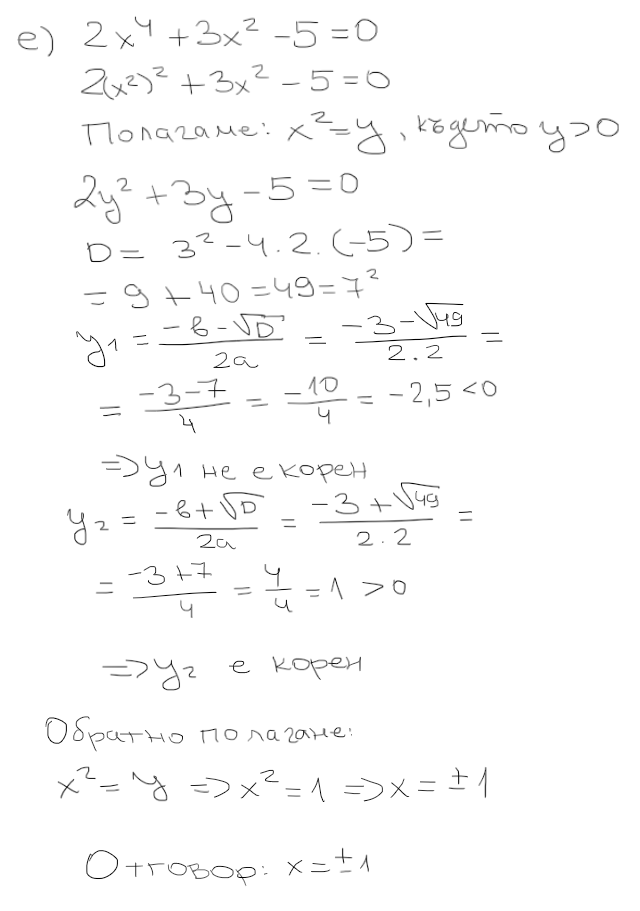 е) 2x⁴ + 3x² - 5 = 0
2(x²)² + 3x² - 5 = 0
Полагаме: x² = y, където y > 0
2y² + 3y - 5 = 0
D = 3² - 4.2.(-5) =
= 9 + 40 = 49 = 7²
y₁ = (-в - √D)/2a = (-3 - √49)/2.2 =
= (-3-7)/4 = -10/4 = -2,5 < 0
=> y₁ не е корен
y₂ = (-в + √D)/2a = (-3 + √49)/2.2 =
= (-3+7)/4 = 4/4 = 1 > 0
=> y₂ е корен
Обратно полагане:
x² = y => x² = 1 => x = ±1
Отговор: x = ±1